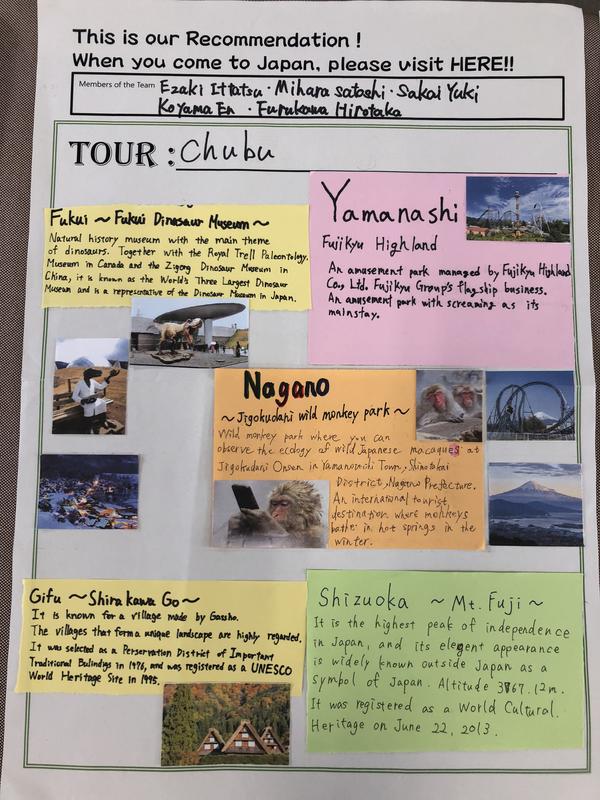 This is our Recommendation !
When you come to Japan, please visit HERE!!
Members of the Team Ezaki Ittatsu · Mihara satoshi · Sakai Yuki
Koyama En · Furukawa Hirotaka
TOUR : Chubu
Fukui ~ Fukui Dinosaur Museum ~
Natural history museum with the main theme
of dinosaurs. Together with the Royal Trell Paleontology.
Museum in Canada and the Zigong Dinosaur Museum in
China, it is known as the World's Three Largest Dinosaur
Museum and is a representative of the Dinosaur Museum in Japan.
Yamanashi
Fujikyu Highland
An amusement park managed by Fujikyu Highland
Co., Ltd. Fujikyu Group's flagship business.
An amusement park with screaming as its
mainstay.
Nagano
~Jigokudani wild monkey park~
Wild monkey park where you can
observe the ecology of wild Japanese macaques at
Jigokudani Onsen in Yamanouchi Town, Shimotakai
District, Nagano Prefecture.
An international tourist
destination where monkeys
bathe in hot springs in the
winter.
Gifu ~Shirakawa Go~
It is known for a village made by Gassho.
The villages that form a unique landscape are highly regarded.
It was selected as a Perservation District of Important
Traditional Bulindys in 1976, and was registered as a UNESCO
World Heritage Site in 1995.
Shizuoka ~ Mt. Fuji ~
It is the highest peak of independence
in Japan, and its elegent appearance
is widely known outside Japan as a
symbol of Japan. Altitude 3767.12m.
It was registered as a World Cultural
Heritage on June 22, 2013.